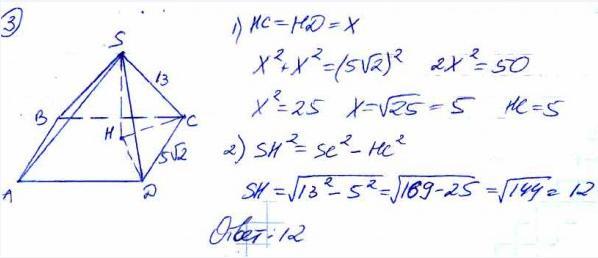 3
S
13
B
H
C
5√2
A
D
1) HC = HD = X
X² + X² = (5√2)² 2X² = 50
X² = 25 X = √25 = 5 HC = 5
2) SH² = SC² − HC²
SH = √13² − 5² = √169 − 25 = √144 = 12
Ответ: 12